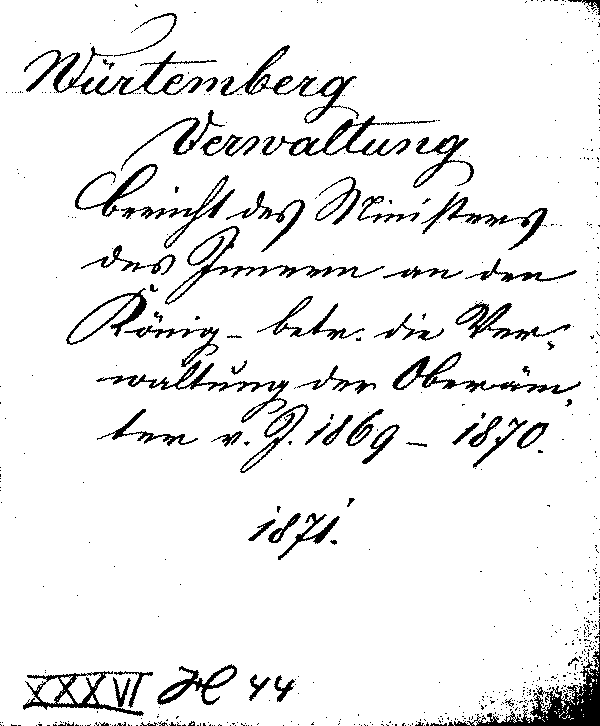 Würtemberg
Verwaltung
bericht des Ministers
des Innern an den
König - betr. die Ver-
waltung der Oberäm,
ter v. J. 1869 - 1870.
1871.
XXXVI H 44